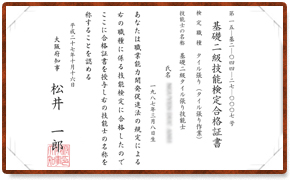 第一五-基二-〇四四-二七-〇〇〇七号
基礎二級技能検定合格証書
検定職種 タイル張り（タイル張り作業）
技能士の名称 基礎二級タイル張り技能士
氏名
一九八七年三月八日生
あなたは職業能力開発促進法の規定による
右の職種に係る技能検定に合格したので
ここに合格証書を授与し右の技能士の名称を
称することを認める
平成二十七年十月十六日
大阪府知事 松井 一郎